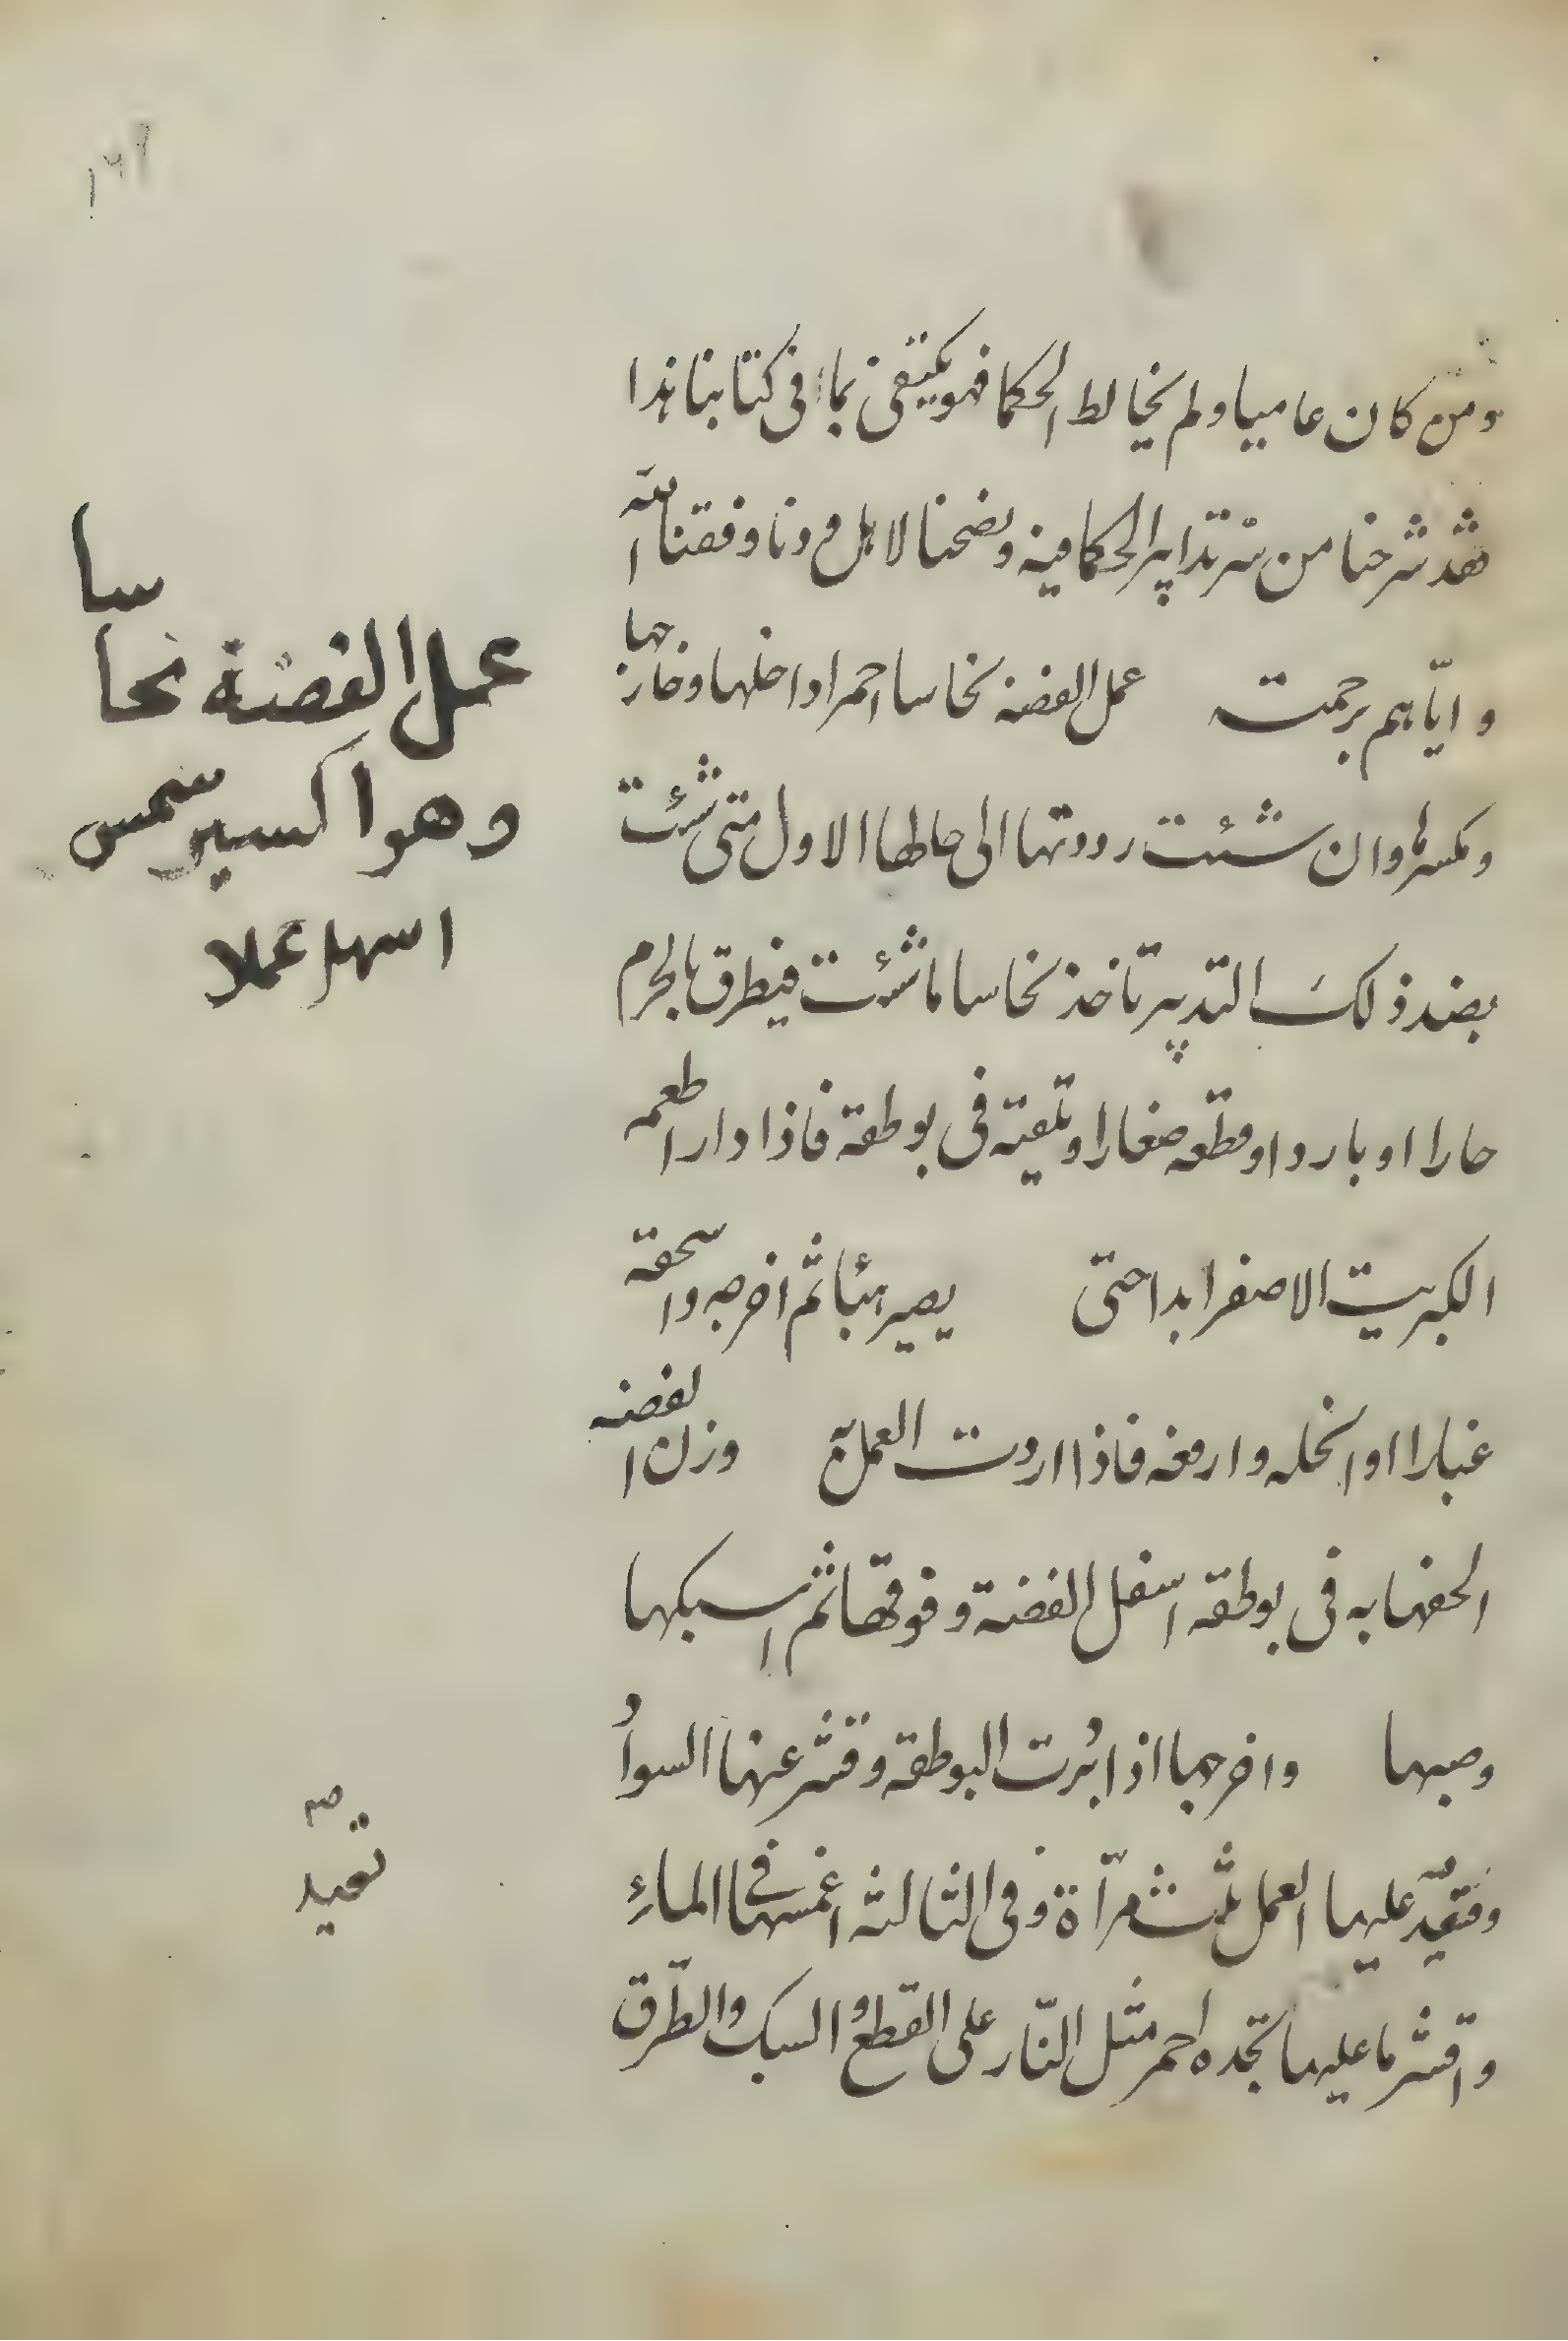 ومن كان عاميا ولم يخالط الحكما فهو يكتفى بما فى كتابنا هذا
فقد شرحنا من سرّ تدابير الحكما فيه ونضحنا لاهل ودنا وفقنا الله
وايّاهم برحمته عمل الفضة نحاسا احمرا داخلها وخارجها
ومكسرها وان شئت رددتها الى حالها الاول متى شئت
بضد ذلك التدبير تاخذ نحاسا ما شئت فيطرق بالجرم
حارا او باردا وقطعه صغارا وتلقيه فى بوطقة فاذا دار اطعمه
الكبريت الاصفر ابدا حتى يصير هبئا ثم اخرجه واسحقة
غبارا او انخله وارفعه فاذا اردت العمل به وزن الفضة
الحفها به فى بوطقه اسفل الفضة وفوقها ثم اسبكها
وصبها واخرجها اذا برُدت البوطقه وقشر عنها السوادُ
وفتقيّد عليها العمل ثلث مرّاة وفى الثالثه اغمسها فى الماءِ
واقشر ما عليها تجده احمر مثل النّار على القطع والسبك والطّرق
عمل الفضة نحاسا
وهو اكسير شمس
اسهل عملا
صح
تعيد